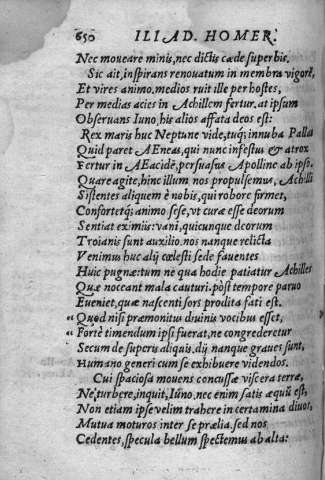 650 ILIAD. HOMER.
Nec moueare minis, nec dictis cæde superbis.
Sic ait, inspirans renouatum in membra vigorē,
Et vires animo. medios ruit ille per hostes,
Per medias acies in Achillem fertur. at ipsum
Obseruans Iuno, his alios affata deos est:
Rex maris huc Neptune vide, tuq; innuba Pallas
Quid paret AEneas, qui nunc infestus & atrox
Fertur in AEacidē, persuasus Apolline ab ipso.
Quare agite, hinc illum nos propulsemus, Achilli
Sistentes aliquem è nobis, qui robore firmet,
Confortetq; animo sese, vt curæ esse deorum
Sentiat eximiis: vani, quicunque deorum
Troianis sunt auxilio. nos nanque relicta
Venimus huc alij cœlesti sede fauentes
Huic pugnætum ne qua hodie patiatur Achilles
Quæ noceant mala cauturi. pòst tempore paruo
Eueniet, quæ nascenti sors prodita fati est.
“ Quod nisi præmonitus diuinis vocibus esset,
“ Fortè timendum ipsi fuerat, ne congrederetur
Secum de superis aliquis. dij nanque graues sunt,
Humano generi cum se exhibuere videndos.
Cui spaciosa mouens concussæ viscera terræ,
Ne, turbere, inquit, Iūno, nec enim satis æquū est,
Non etiam ipse velim trahere in certamina diuos,
Mutua moturos inter se prælia. sed nos
Cedentes, specula bellum spectemus ab alta: